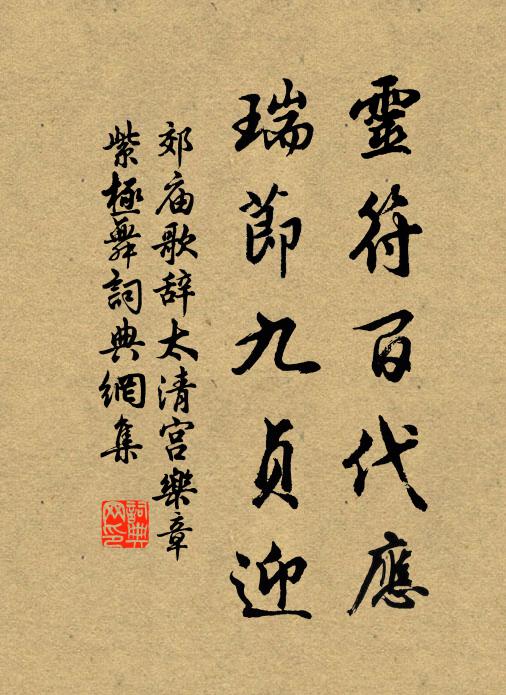 靈符百代應
瑞節九貞迎
郊庙歌辞太清宫樂章
紫極舞詞典網集
詞典网印